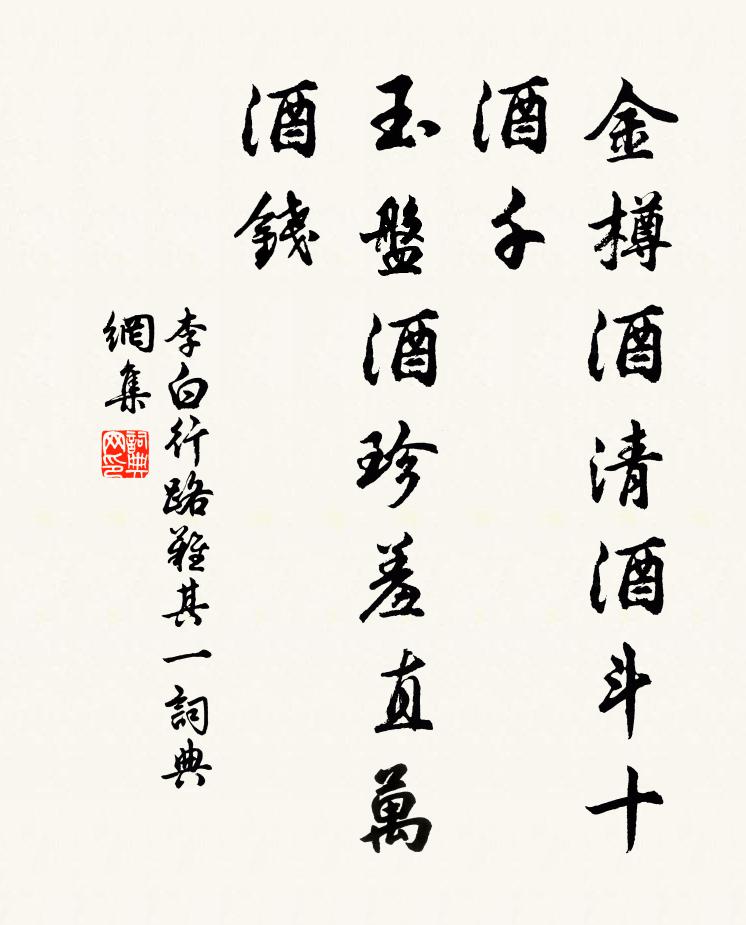 金樽酒清酒斗十
酒千
玉盤酒珍羞直萬
酒錢
李白行路難其一詞典
網集
詞典
网印